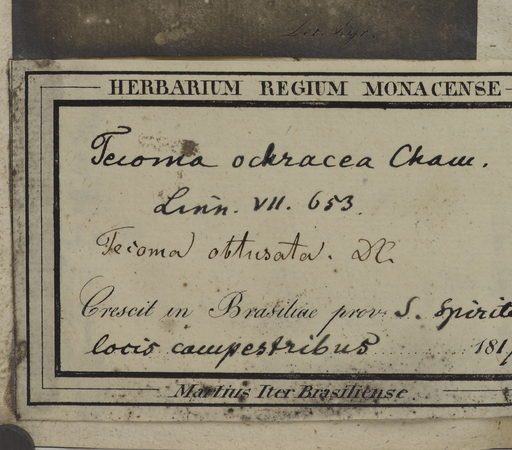 HERBARIUM REGIUM MONACENSE
Tecoma ochracea Cham.
Linn. VII. 653.
Tecoma obtusata. DC.
Crescit in Brasiliae prov. S. Spirito
locis campestribus 181
Martius Iter Brasiliense.